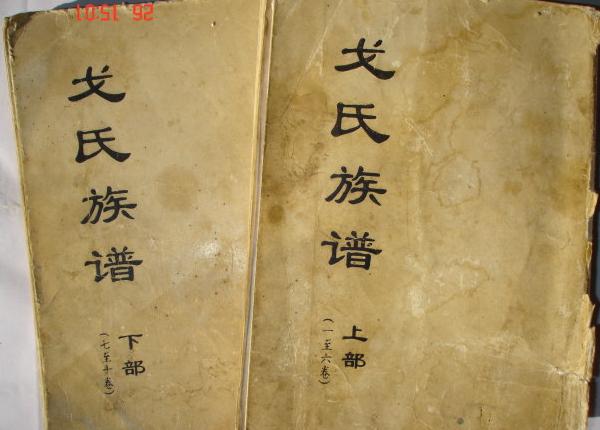 戈氏族谱
下部
(七至十卷)
戈氏族谱
上部
(一至六卷)